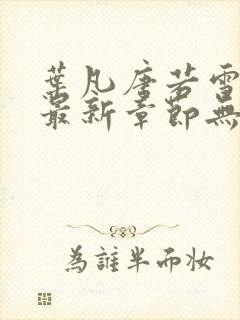 葉凡唐若雪
最新章節無
為誰半而妝